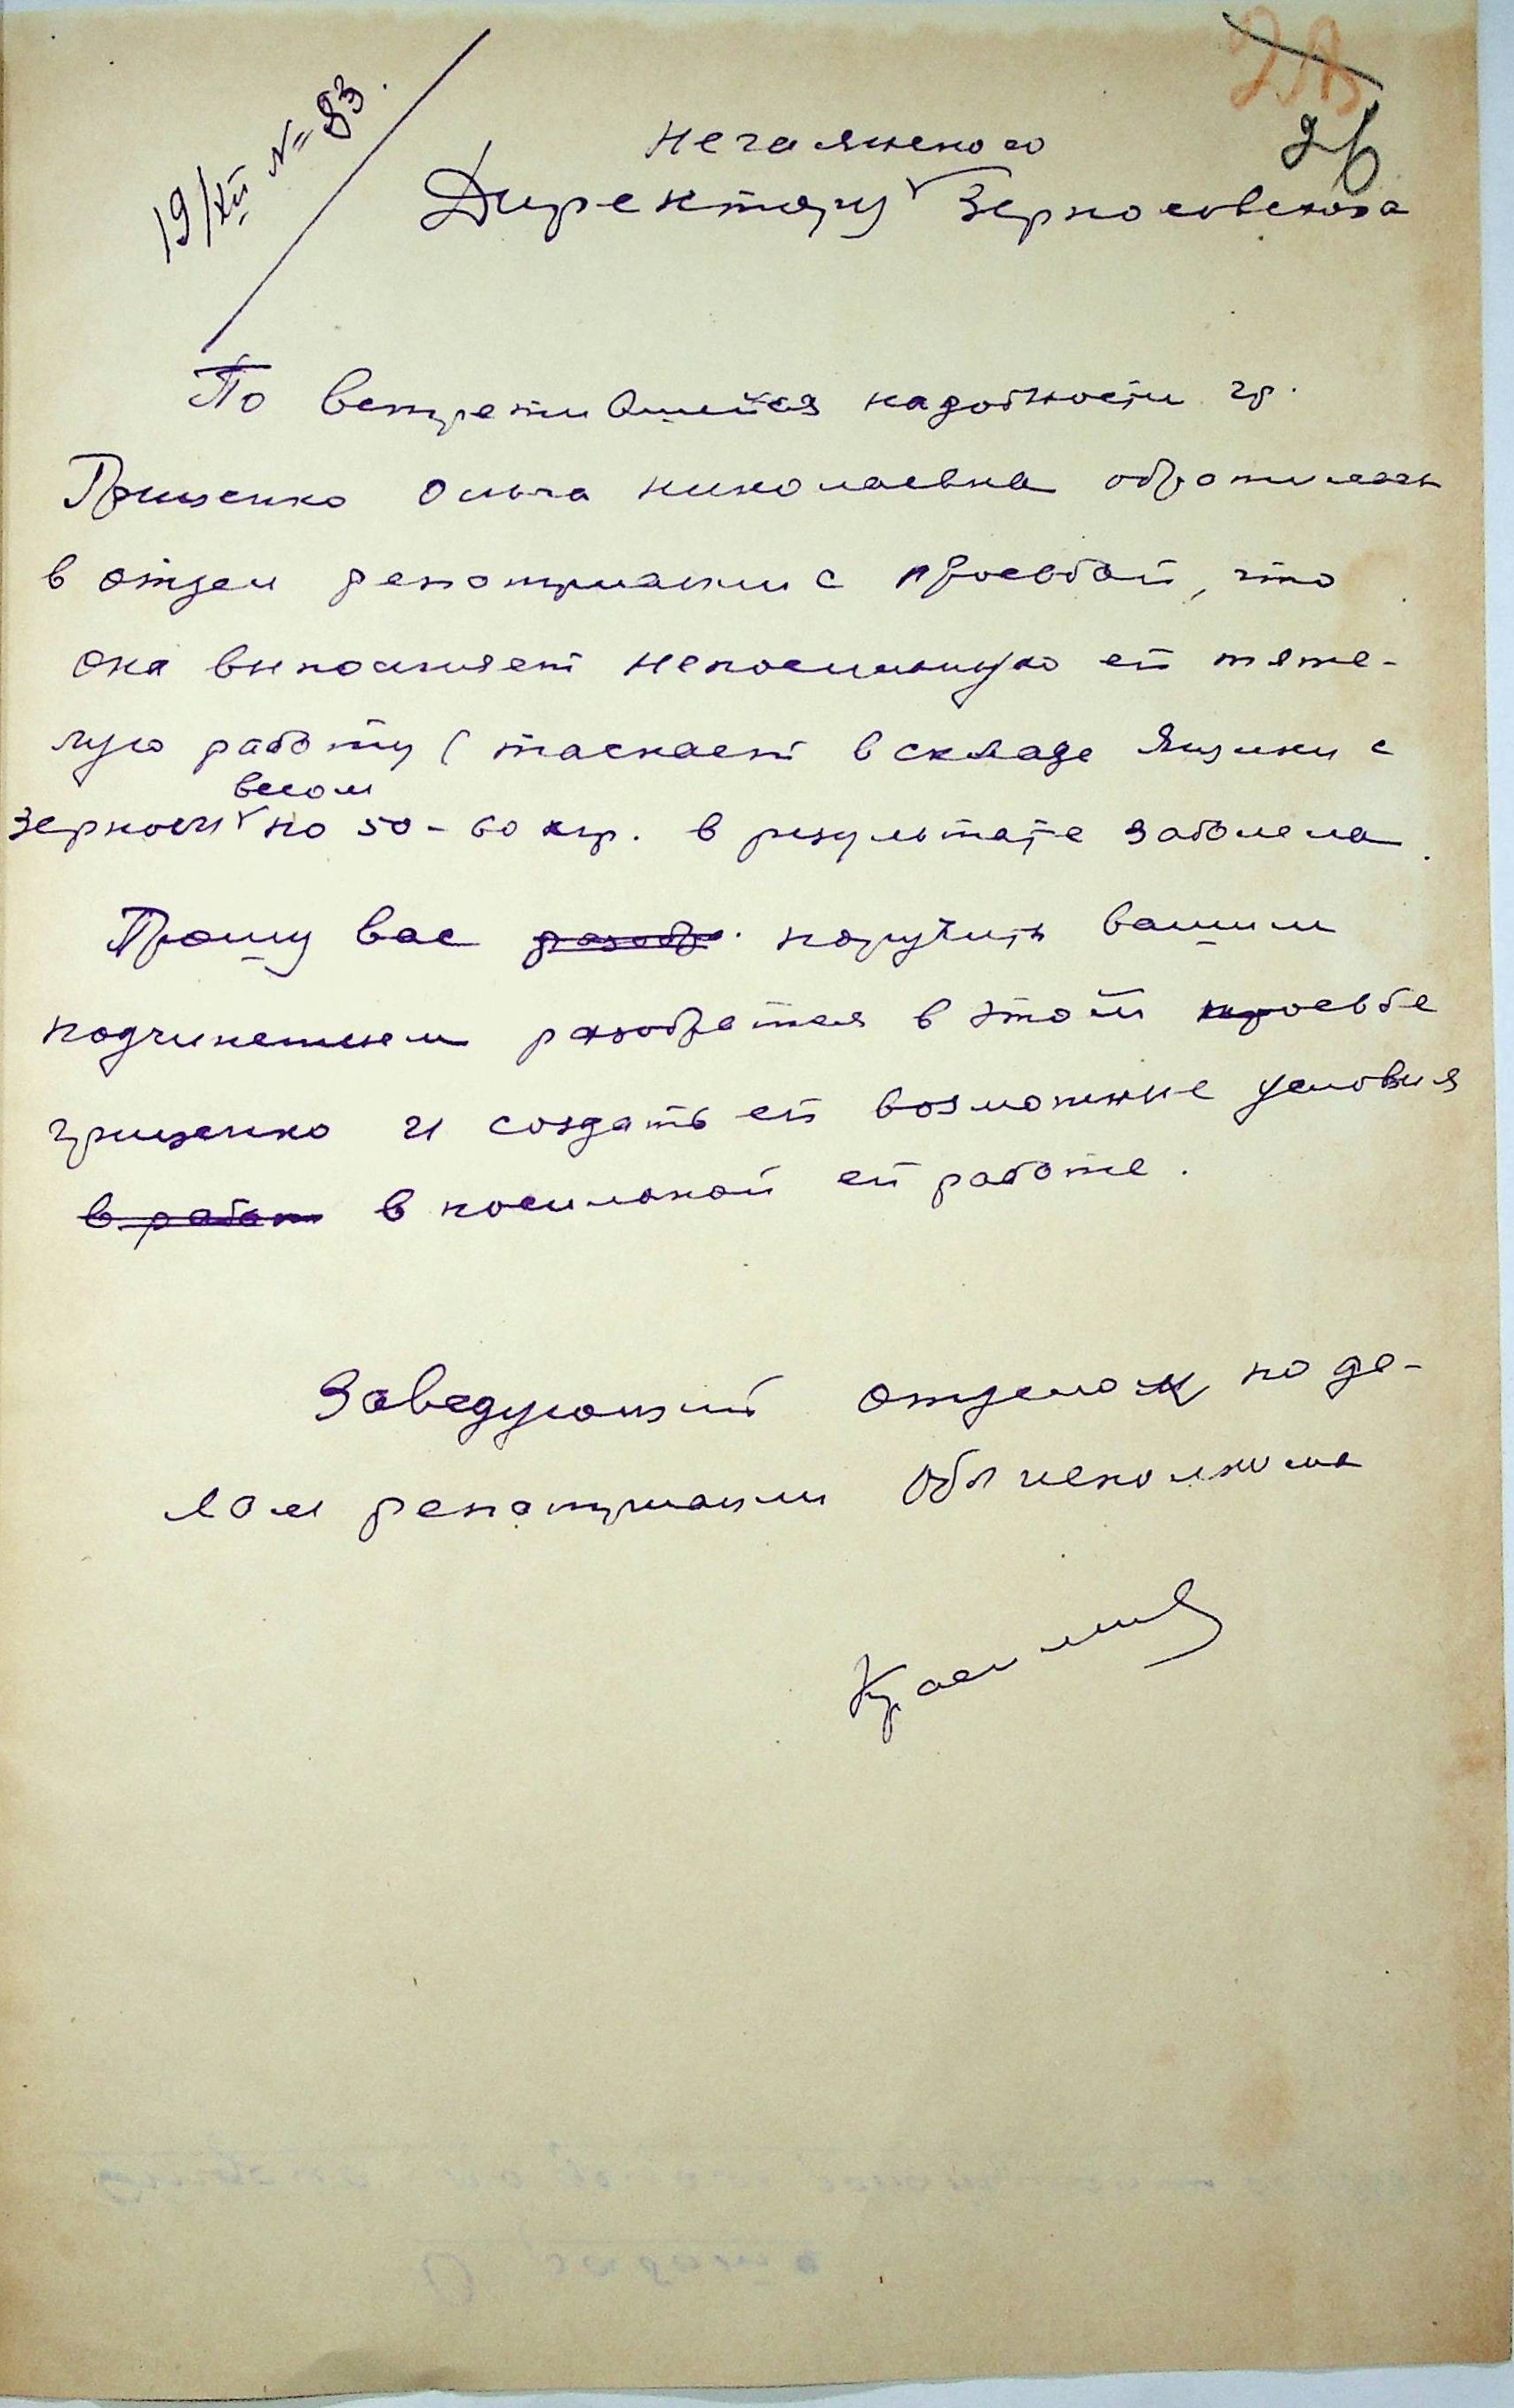 19/XII № 83.
28
26
Нечаянского
Директору Зерносовхоза
По встретившейся надобности гр.
Грищенко Ольга Николаевна обратилась
в отдел репатриации с просьбой, что
она выполняет непосильную ей тяже-
лую работу (таскает в складе ящики с
весом
зерном по 50-60 кгр. в результате заболела.
Прошу вас разобр. поручить вашим
подчиненным разобратся в этой просьбе
грищенко и создать ей возможные условия
в работ в посильной ей работе.
Заведующий отделом по де-
лам репатриации Облисполкома